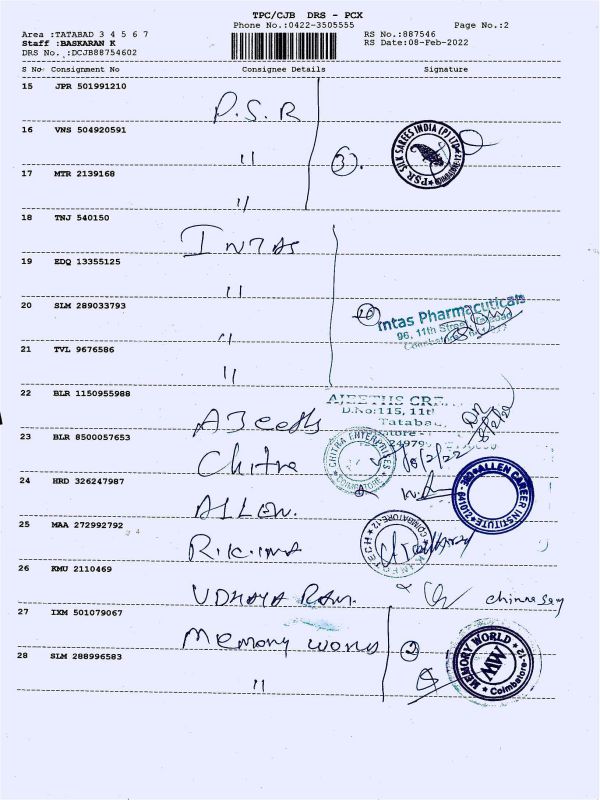 TPC/CJB DRS - PCX
Phone No.:0422-3505555 Page No.:2
Area :TATABAD 3 4 5 6 7
Staff :BASKARAN K
DRS No. :DCJB88754602
RS No.:887546
RS Date:08-Feb-2022
S No Consignment No Consignee Details Signature
15 JPR 501991210
P.S.R
16 VNS 504920591
"
3
PSR SILK SAREES INDIA (P) LTD
COIMBATORE-12
17 MTR 2139168
"
18 TNJ 540150
INTAS
19 EDQ 13355125
"
20 SLM 289033793
"
Intas Pharmaceuticals
96, 11th Street
21 TVL 9676586
"
22 BLR 1150955988
AJeeths
AJEETHS
D.No:115, 11th
Tatabad
23 BLR 8500057653
Chitra
CHITRA ENTERPRISES
COIMBATORE
24 HRD 326247987
ALLEN.
ALLEN CAREER INSTITUTE
25 MAA 272992792
R.K.
INFOTECH
COIMBATORE-12
26 KMU 2110469
UDHAYA RAM.
27 IXM 501079067
Memory
2
MEMORY WORLD
MW
Coimbatore-12
28 SLM 288996583
"